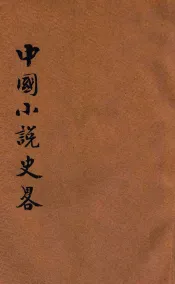 中國小說史畧